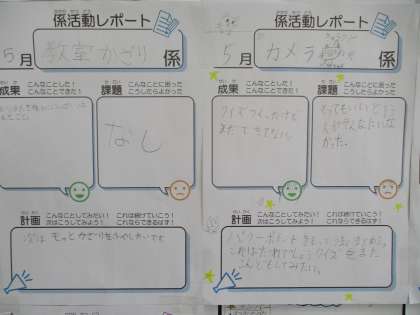 係活動レポート
5月 教室かざり 係
成果 こんなことした！
こんなことできた！
課題 こんなことに困った
こうしたらよかった
なし
計画 こんなことしてみたい！ これは続けていこう！
次はこうしてみよう！ これならできるはず！
次は もっと かざりをふやしたいです
係活動レポート
5月 カメラ 係
成果 こんなことした！
こんなことできた！
課題 こんなことに困った
こうしたらよかった
クイズつくったけど
まだできてない
とってもいいよという
人が
かった。
計画 こんなことしてみたい！ これは続けていこう！
次はこうしてみよう！ これならできるはず！
パワーポイントを
これはだれでしょうクイズをまた
こんどもしてみたい。